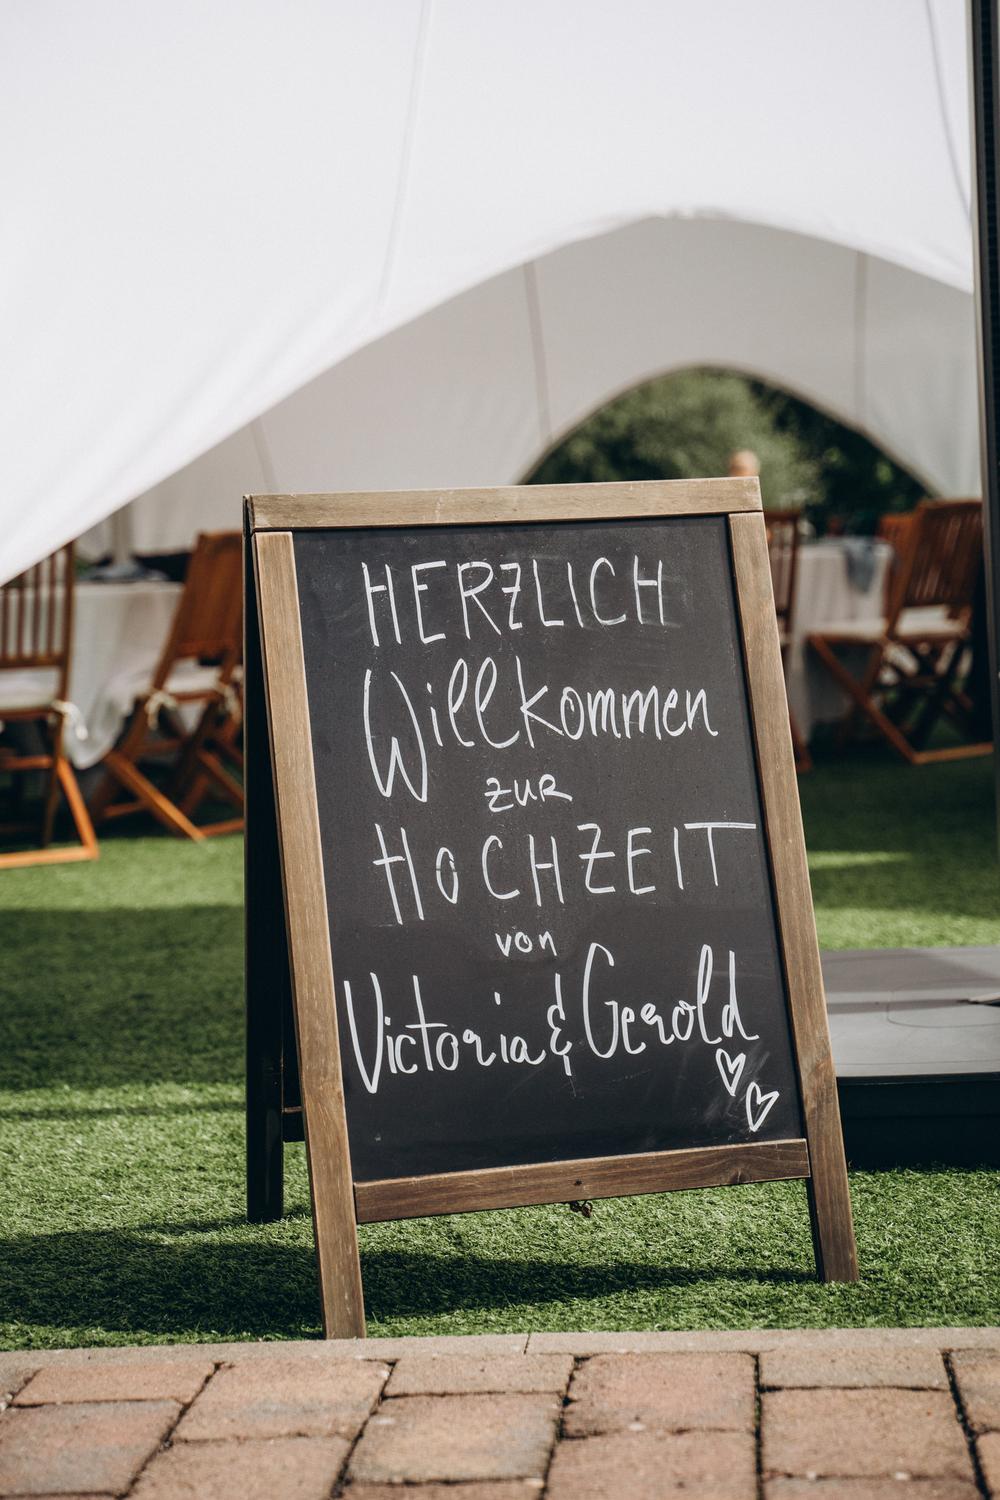 HERZLICH
Willkommen
zur
HOCHZEIT
von
Victoria & Gerold